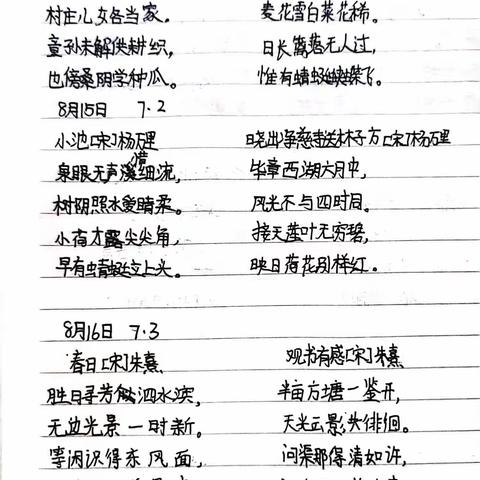 村庄儿女各当家。 麦花雪白菜花稀。
童孙未解供耕织, 日长篱落无人过,
也傍桑阴学种瓜。 惟有蜻蜓蛱蝶飞。
8月15日 7.2
小池[宋]杨万里 晓出净慈寺送林子方[宋]杨万里
泉眼无声惜细流, 毕竟西湖六月中,
树阴照水爱晴柔。 风光不与四时同。
小荷才露尖尖角, 接天莲叶无穷碧,
早有蜻蜓立上头。 映日荷花别样红。
8月16日 7.3
春日[宋]朱熹 观书有感[宋]朱熹
胜日寻芳泗水滨, 半亩方塘一鉴开,
无边光景一时新。 天光云影共徘徊。
等闲识得东风面, 问渠那得清如许,